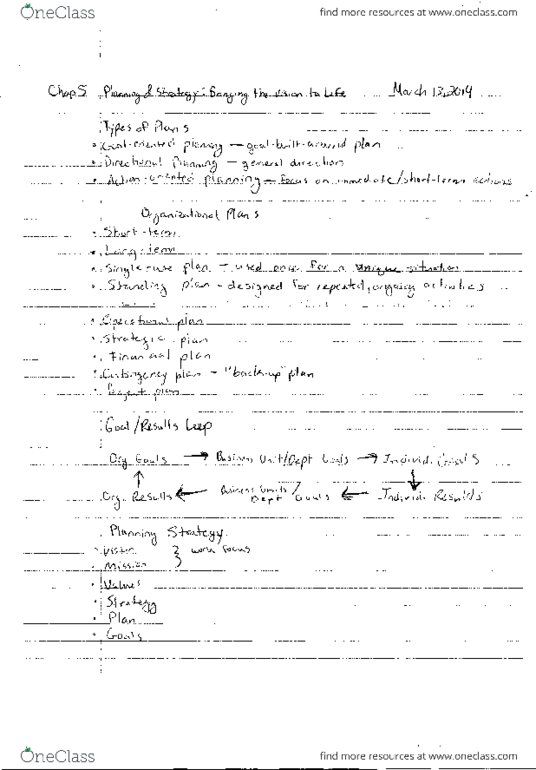 OneClass
find more resources at www.oneclass.com
Chap.5 Planning & Strategy: Banging the Vision to Life March 13, 2014
Types of Plans
• Goal-oriented planning — goal-built-around plan
• Directional Planning — general direction
• Action-oriented planning — focus on immediate/short-term actions
Organizational Plans
• Short-term
• Long-term
• Single-use plan — used once for a unique situation
• Standing plan - designed for repeated, ongoing activities
• Operational plan
• Strategic plan
• Financial plan
• Contingency plan - "back-up" plan
plan
Goal/Results Loop
Org Goals → Business Unit/Dept Goals → Individ. Goals
↑ ↓
Org. Results ← Business Units/ Dept Goals ← Individ. Results
Planning Strategy
• Vision } work focus
• Mission
• Values
• Strategy
• Plan
• Goals
OneClass
find more resources at www.oneclass.com